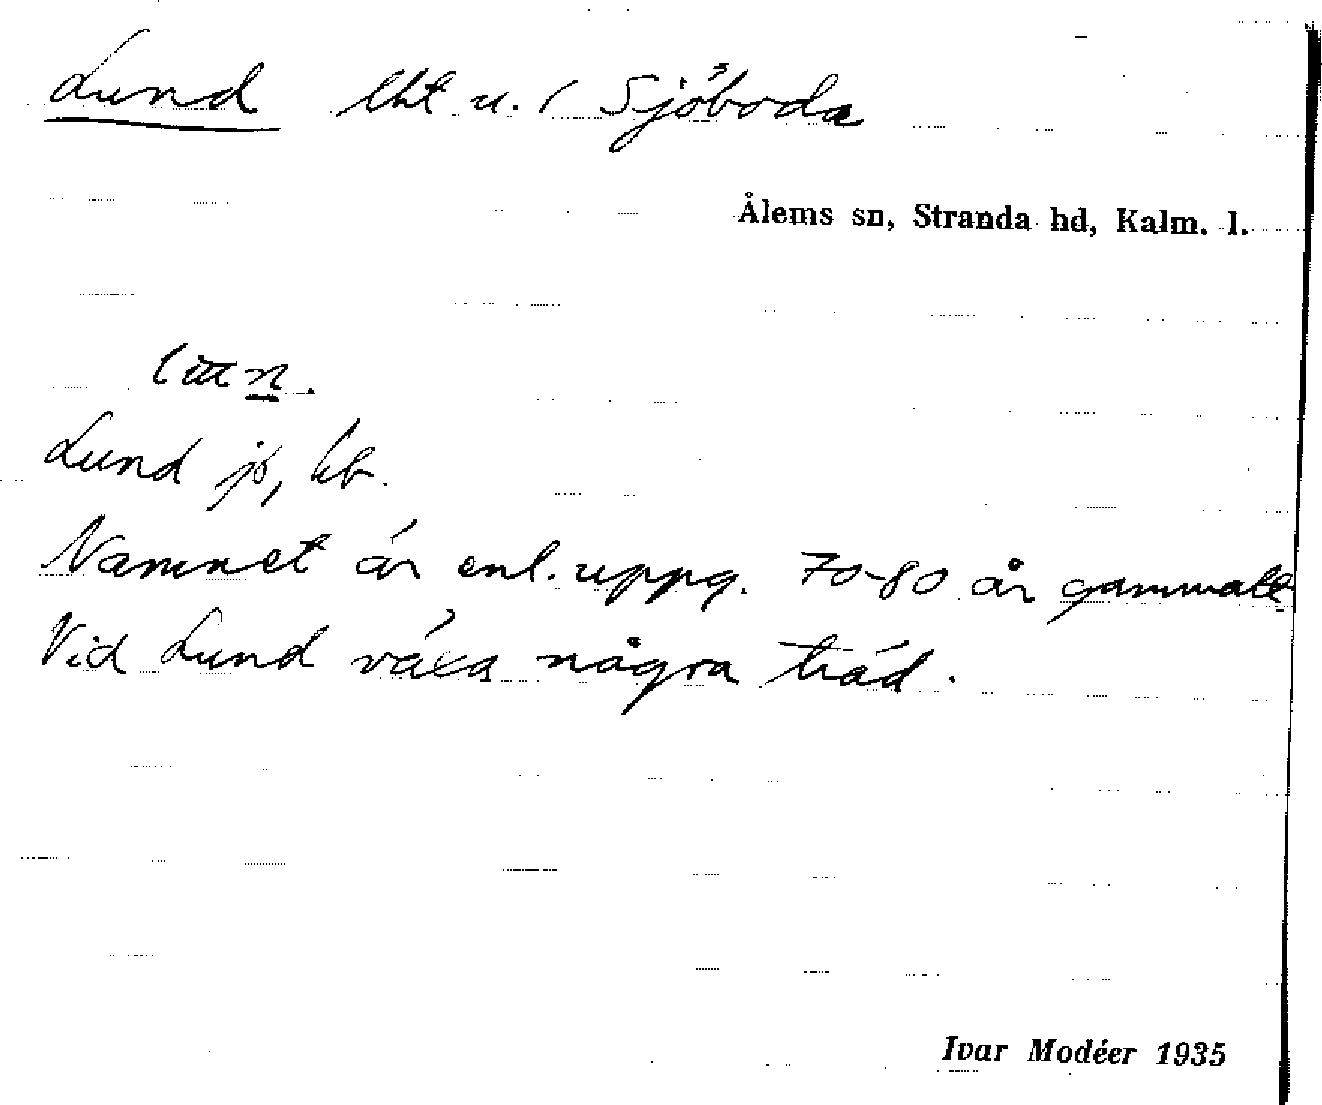 Lund lht u. / Sjöboda
Ålems sn, Stranda hd, Kalm. l.
Lund jo, kb.
Namnet är enl. uppg. 70-80 år gammalt
Vid Lund växa några träd.
Ivar Modéer 1935